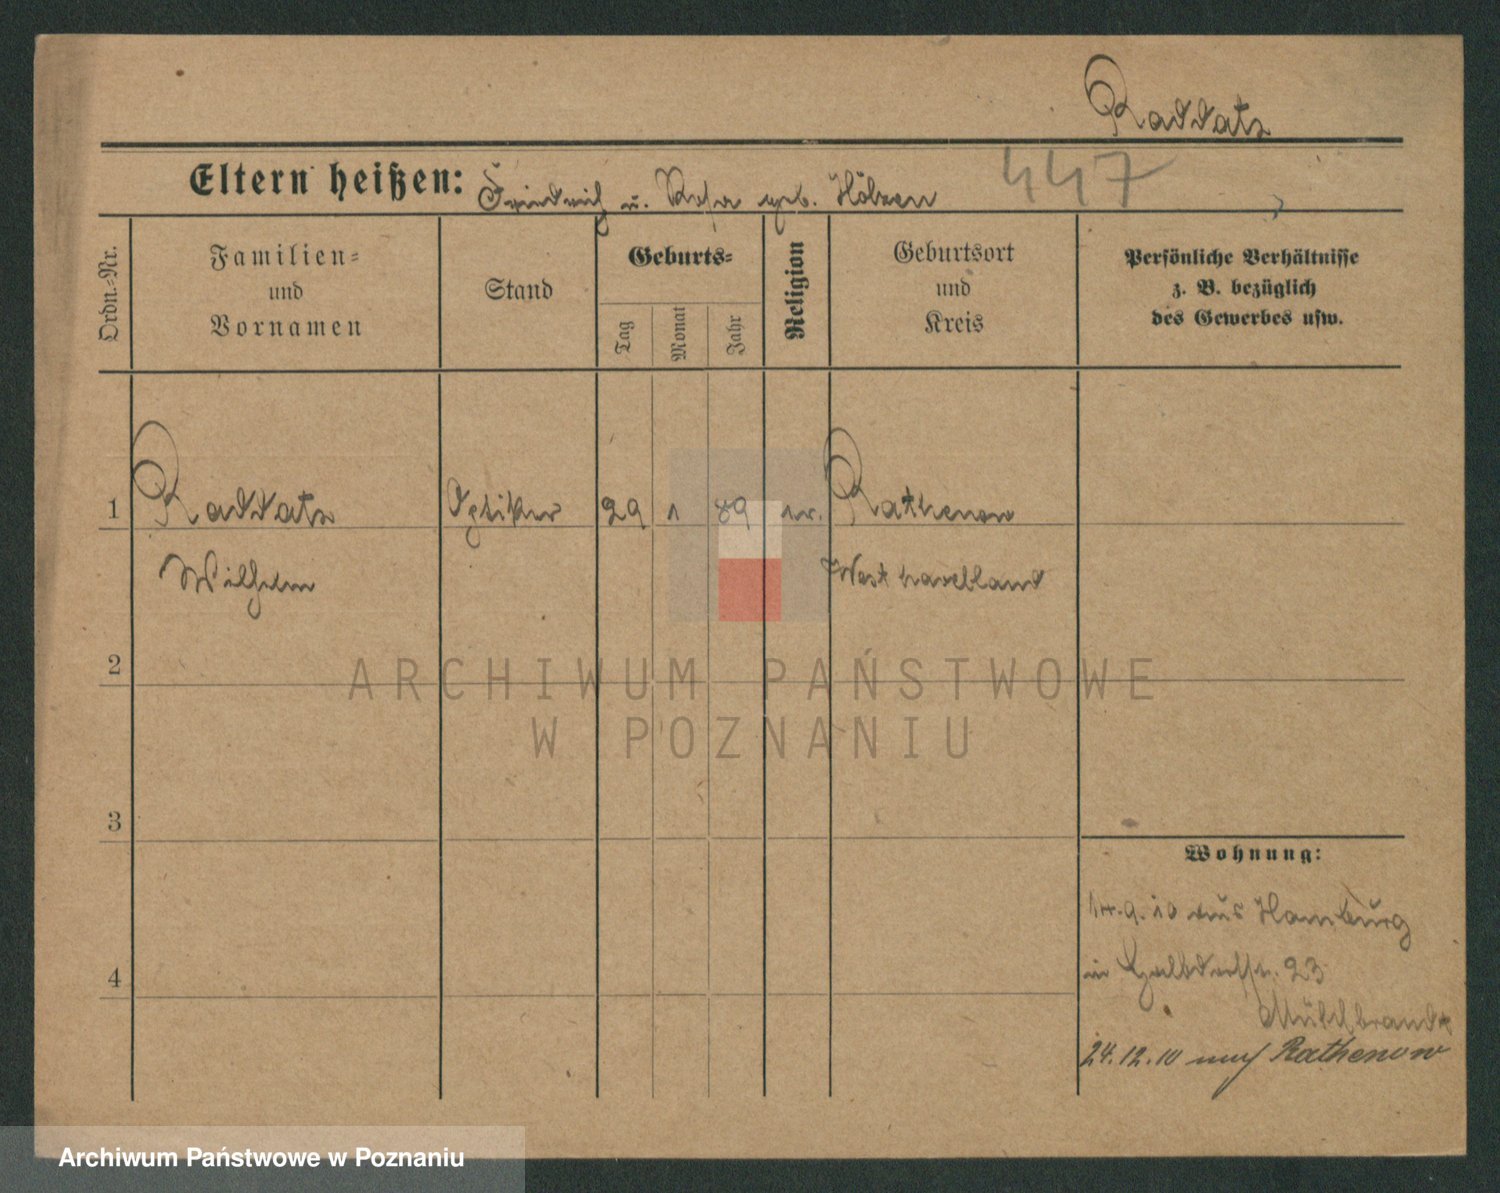 Raddatz
Eltern heißen: Friedrich u. Rosa geb. Hölzen
447
Ordn.-Nr.
Familien-
und
Vornamen
Stand
Geburts-
Tag
Monat
Jahr
Religion
Geburtsort
und
Kreis
Persönliche Verhältnisse
z. B. bezüglich
des Gewerbes usw.
1 Raddatz Optiker 29 1 89 ev. Rathenow
Wilhelm Westhavelland
2
3
4
Wohnung:
14.9.10 aus Hamburg
in 23
Mühlbrandt
24.12.10 nach Rathenow
ARCHIWUM PAŃSTWOWE
W POZNANIU
Archiwum Państwowe w Poznaniu